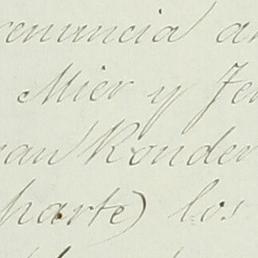 renuncia a
Mier y Te
an Ronder
harte) los